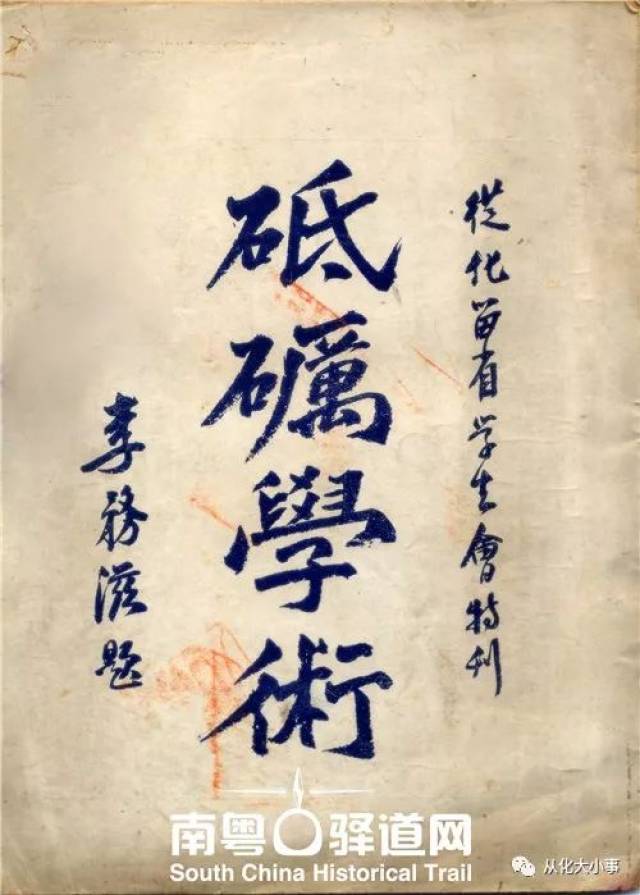 從化留省学生會特刊
砥礪學術
李務滋題
南粤驿道网
South China Historical Trail
从化大小事